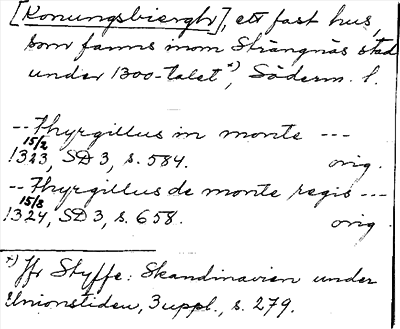 [Konungsbiergh], ett fast hus,
som fanns inom Strängnäs stad
under 1300-talet*), Söderm. l.
-- Thyrgillus in monte ---
15/2
1323, SD 3, s. 584. orig.
-- Thyrgillus de monte regis ---
15/8
1324, SD 3, s. 658. orig.
*) Jfr Styffe: Skandinavien under
Unionstiden, 3 uppl., s. 279.